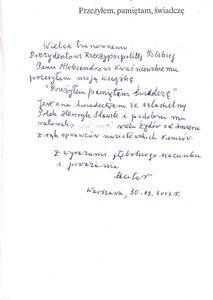 Przeżyłem, pamiętam, świadczę
Wielce Szanownemu
Prezydentowi Rzeczypospolitej Polskiej
Panu Aleksandrowi Kwaśniewskiemu
przesyłam moją książkę
"Przeżyłem pamiętam świadczę"
Jest ona świadectwem że szlachetny
Polak Henryk Sławik i podobni mu
ratowali wielu Żydów od śmierci
z rąk oprawców nazistowskich Niemców.
Z wyrazami głębokiego szacunku
i poważania
Autor
Warszawa, 30.